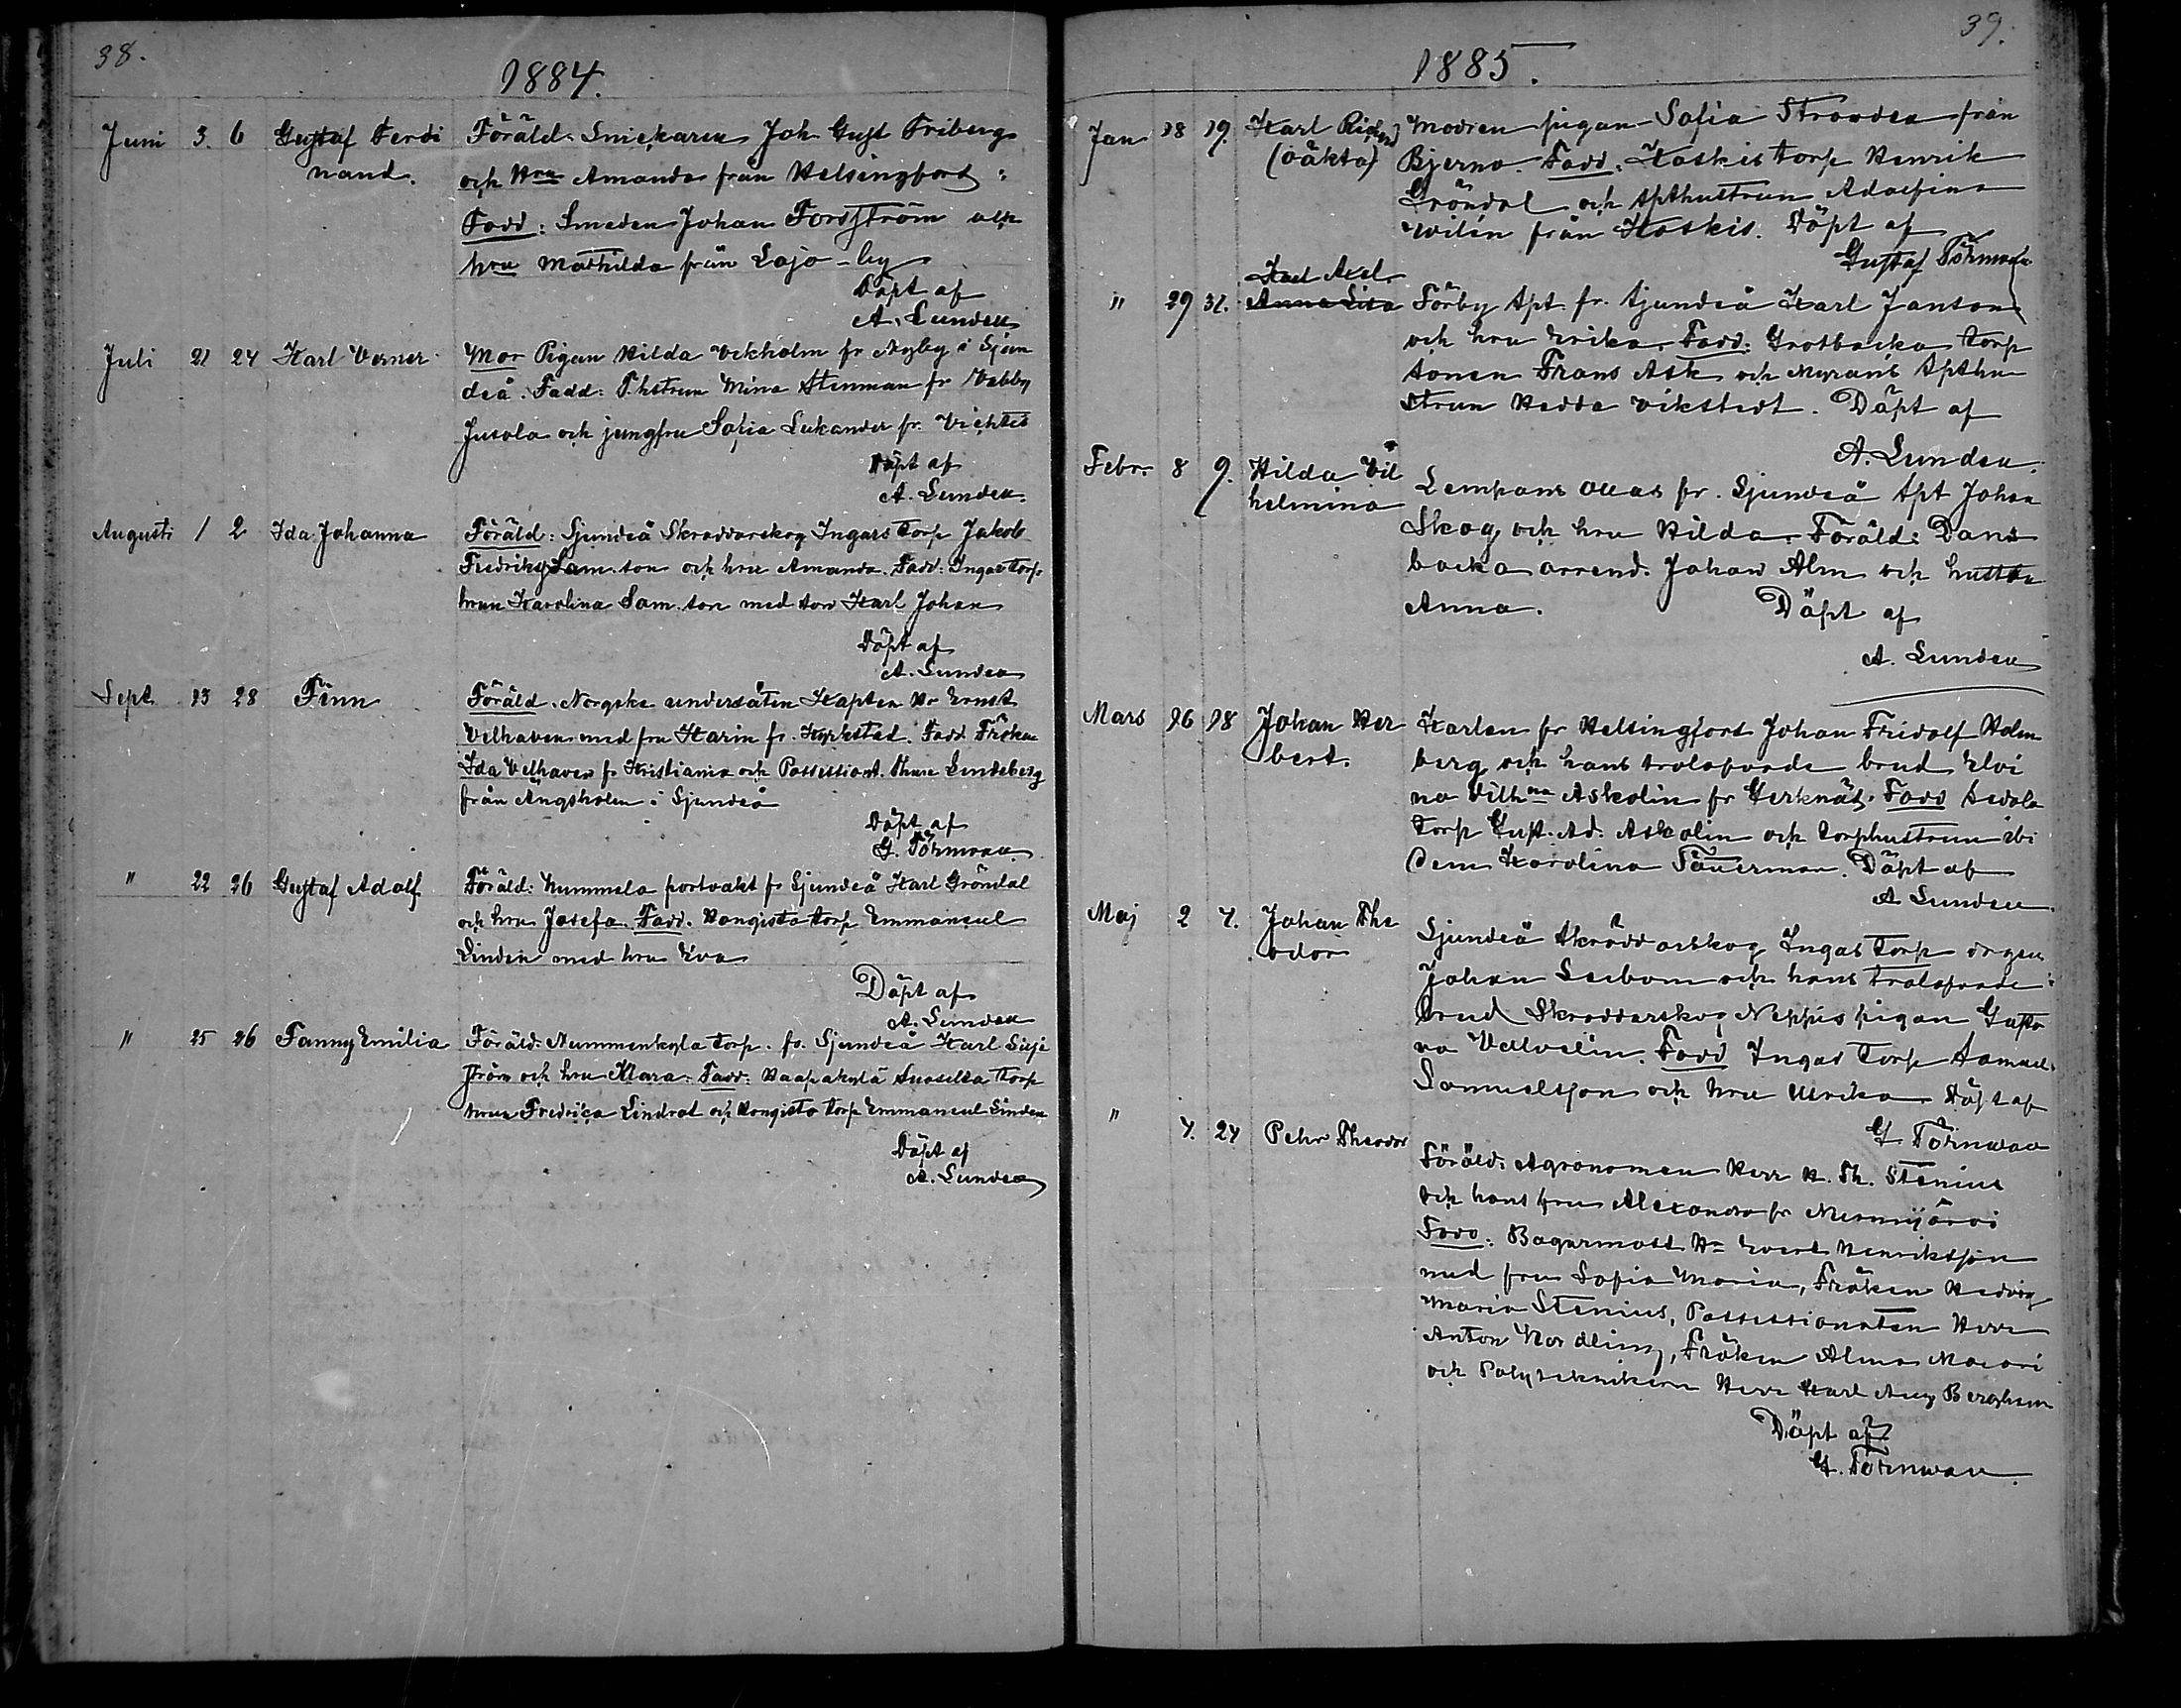 38.
1884.
Juni 3. 6 Gustaf Ferdi Föräld. Snickaren Joh. Gust Friberg
nand. och Hru Amanda från Helsingfors:
Fadd: Smeden Johan Fordström och
hru Mathilda från Lajo-by
Döpt af
A. Lunden
Juli 21 24 Karl Verner Mor Pigan Hilda Vekholm fr i Sjun
deå. Fadd: T.hstrun Mina Stenman fr Vabby
Jusola och jungfru Sofia Lukander fr. Vichtis
Döpt af
A. Lunden.
Augusti 1 2 Ida Johanna Föräld: Sjundeå Skraddarskog Ingars Torp Jakob
Fredrik Sam.son och hru Amanda. Fadd: Ingas torp
hrun Karolina Sam.son med son Karl Johan
Döpt af
A. Lunden
Sept. 23 28 Finn Föräld. Norgske undersåten Kapten Hr Ernst
Velhaven med fru Karin fr. Fadd Fröken
Ida Velhaven fr Kristiania och Possessionat. Thure Lindeberg
från Ängsholm i Sjundeå
Döpt af
G. Törnwau
" 22 26 Gustaf Adolf Föräld: Nummela portvakt fr Sjundeå Karl Gröndal
och hru Josefa. Fadd. Hongisto torp Emmanuel
Linden med hru Eva
Döpt af
A. Lunden
" 25 26 Fanny Emilia Föräld: Nummenkyla torp. fr. Sjundeå Karl Silje
ström och hru Klara. Fadd: Haapakylä Suosilta torp
hrun Fredrica Lindrot och Hongisto torp Emmanuel Linden
Döpt af
A. Lunden
39.
1885.
Jan 18 19. Karl Richard Modren pigan Sofia Stranden från
(oäkta) Bjerno. Fadd. Koskis torp Henrik
Gröndal och Apthustrun Adolfina
Wilén från Koskis. Döpt af
Gustaf Törnwau
Karl Axel
" 29 31. Anna Lisa Förby Apt. fr. Sjundeå Karl Janson
och hru Erika. Fadd: Grotbacka torp
sonen Frans Ask och Myrans Apthu
strun Hedda Vikstedt. Döpt af
A. Lunden.
Febr. 8 9. Hilda Vil
helmina Lempans Ollas fr. Sjundeå Apt Johan
Skog och hru Hilda. Föräld: Dans
backa arrend. Johan Alm och hustru
Anna. Döpt af
A. Lunden
Mars 16 18 Johan Her Karlen fr Helsingfors Johan Fridolf Holm
bert. berg och hans trolofvade brud Elvi
na Vilhna Askolin fr Gerknäs. Fadd Suvola
torp Gust. Ad. Askolin och torphustrun ibi
dem Karolina Säuerman. Döpt af
A Lunden
Maj 2 4. Johan The Sjundeå Skräddarskog Ingas torp drgen
odor Johan Seebom och hans trolofvade
brud Skraddarskog Neppis pigan Gusta
va Vallelin. Fadd Ingas torp Samuel
Samuelsson och hru Ulrika Döpt af
G Törnwau
" 4. 24 Pehr Theodor Föräld: Agronomen Herr H. Th. Stenius
och hans fru Alexandra fr Nurmijärvi
Fadd: Bagarmast Hr Evert Henriksson
med fru Sofia Maria, Fröken Hedvig
Maria Stenius, Possessionaten Herr
Anton Nordling, Fröken Alma
och Polyteknikern Herr Karl Aug Berghem
Döpt af
G. Törnwau.